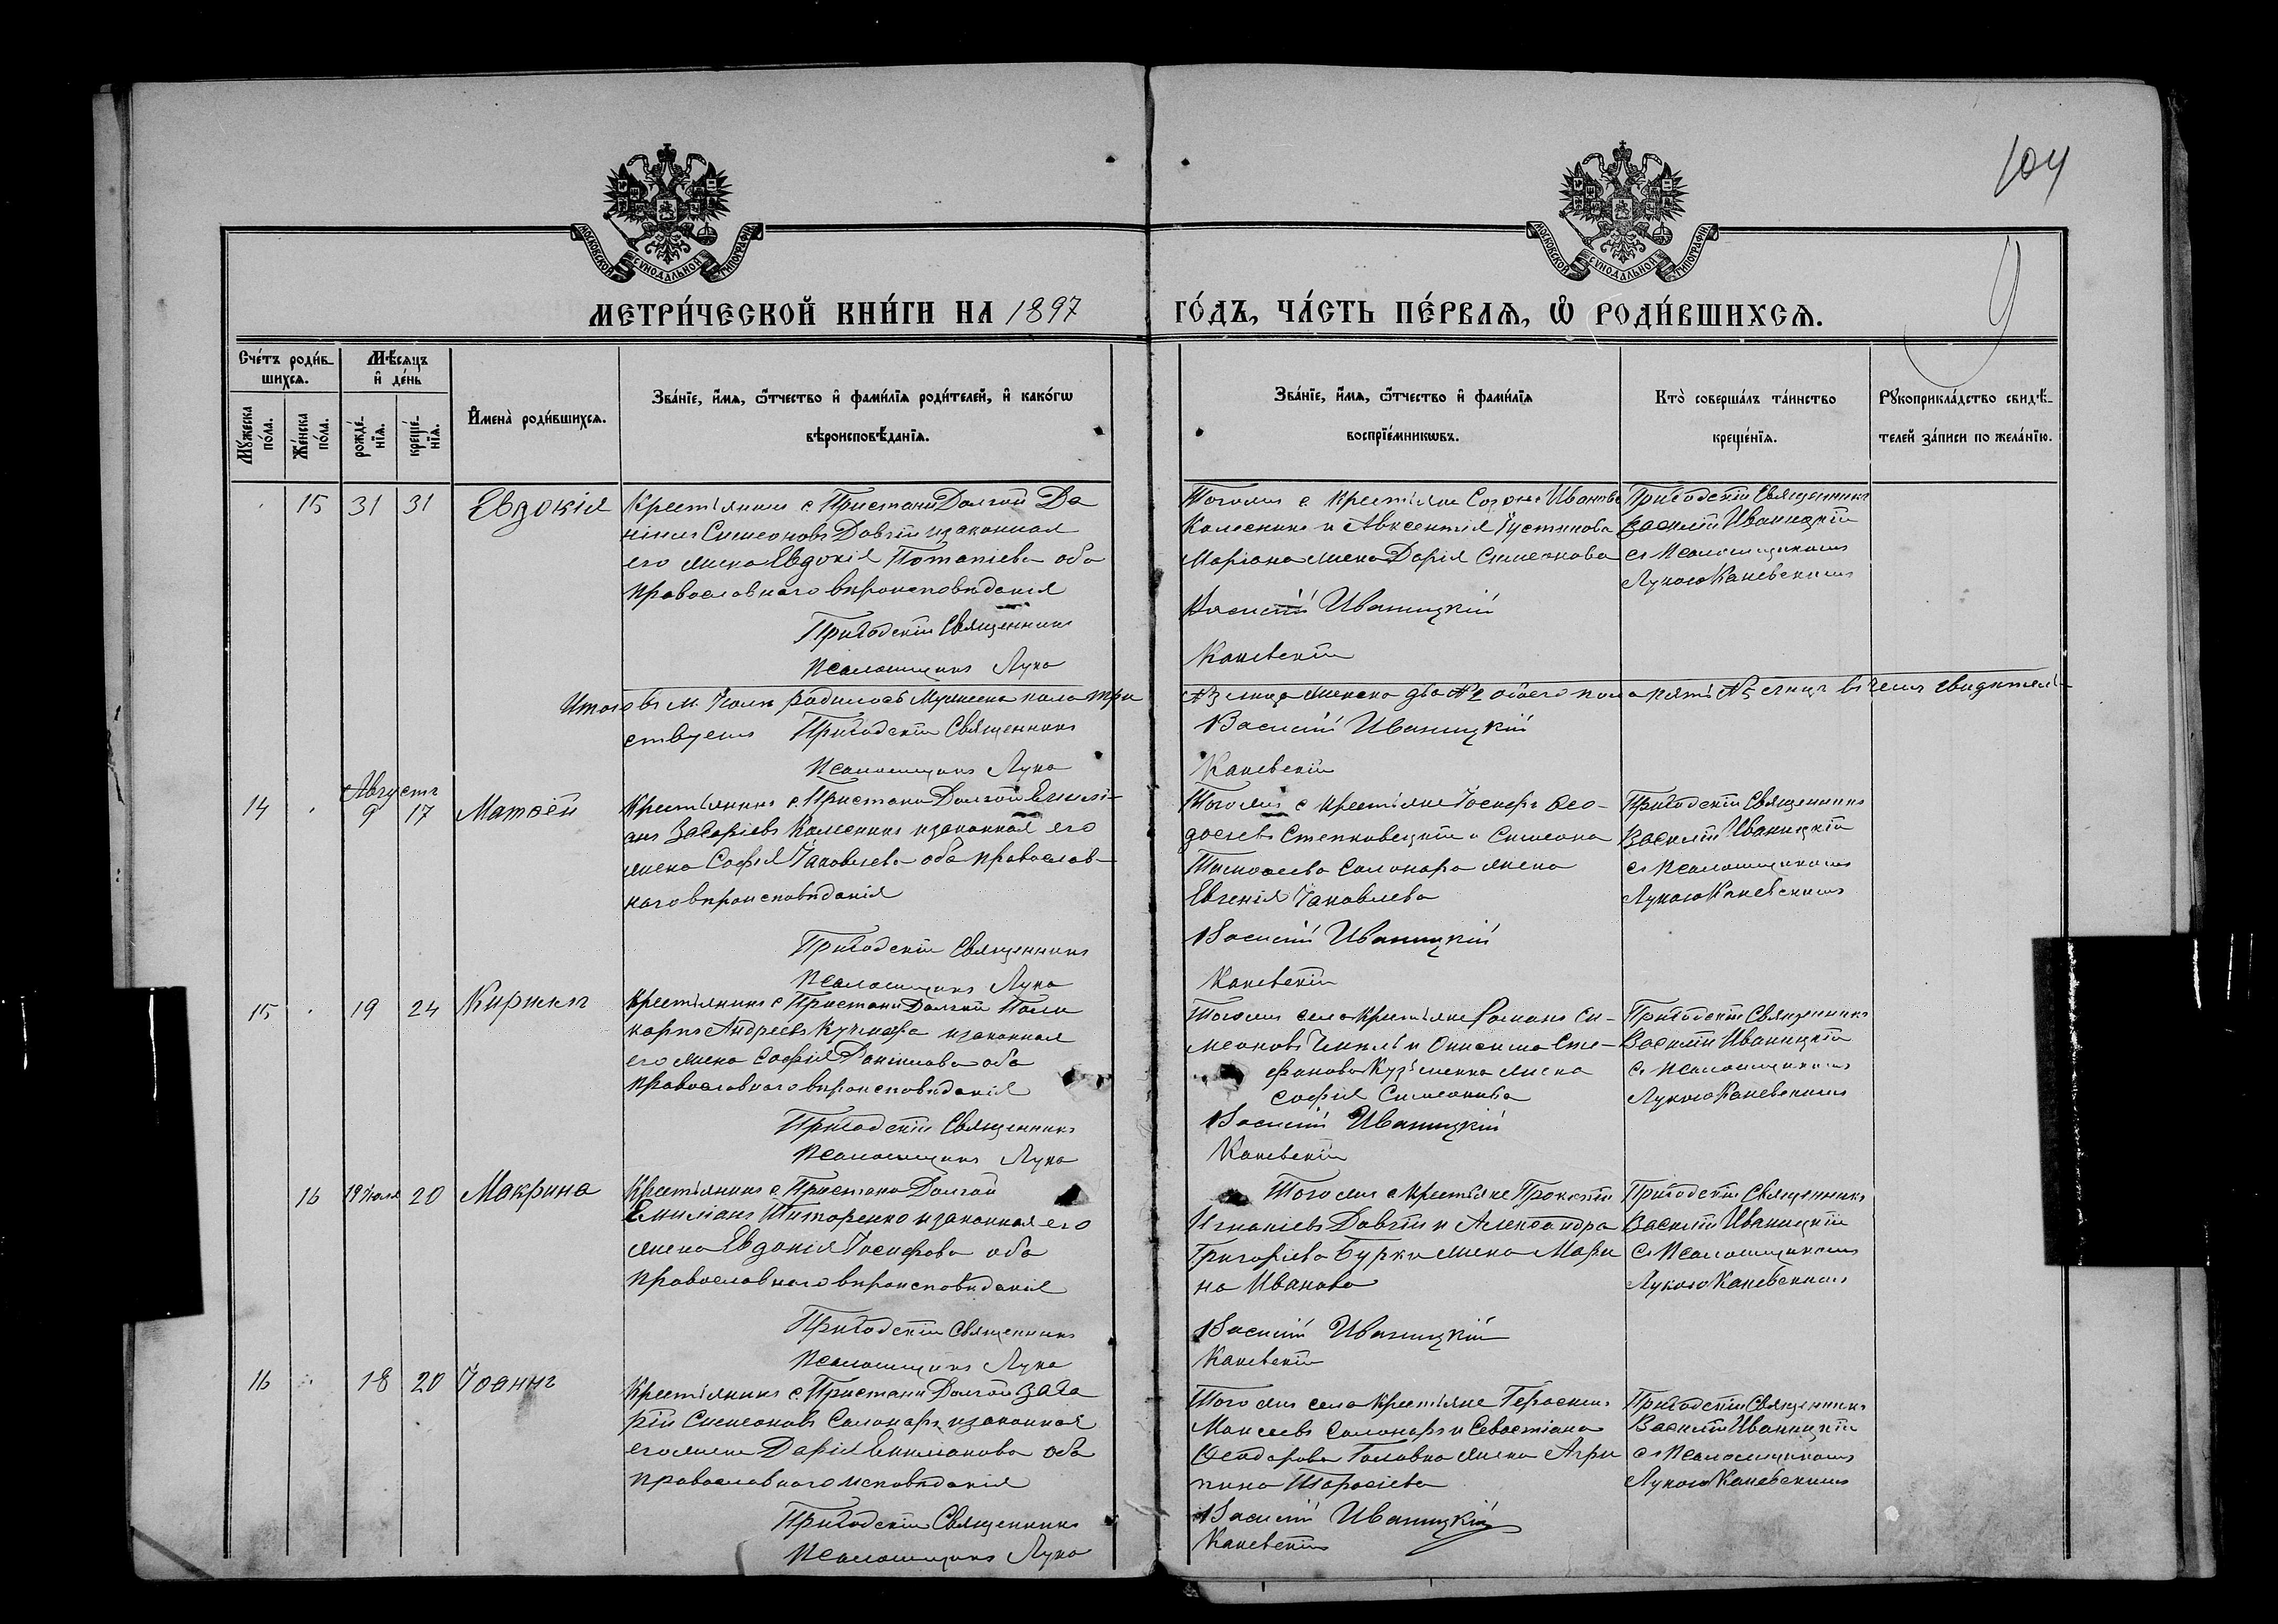 104
9
МОСКОВСКОЙ СѴНОДАЛЬНОЙ ТИПОГРАФІИ
МОСКОВСКОЙ СѴНОДАЛЬНОЙ ТИПОГРАФІИ
МЕТРИ́ЧЕСКОЙ КНИ́ГИ НА 1897 ГО́ДЪ, ЧА́СТЬ ПЕ́РВАѦ, Ѡ҆ РОДИ́ВШИХСѦ.
Сче́тъ роди́в-
шихсѧ.
Мѣ́сѧцъ
и҆ де́нь
Мꙋ́жеска
по́ла.
Же́нска
по́ла.
рожде́-
нїѧ.
креще́-
нїѧ.
И҆мена̀ роди́вшихсѧ.
Зва́нїе, и҆́мѧ, ѻ҆́тчество и҆ фами́лїѧ роди́телей, и҆ како́гѡ
вѣроисповѣ́данїѧ.
Зва́нїе, и҆́мѧ, ѻ҆́тчество и҆ фами́лїѧ
воспрїе́мникѡвъ.
Кто̀ соверша́лъ та́инство
креще́нїѧ.
Рꙋкоприкла́дство свидѣ́-
телей за́писи по жела́нїю.
15 31 31 Евдокія
Крестьянинъ с Пристани Долгой Да
ніилъ Симеоновъ Довгій и законная
его жена Евдокія Потапіева оба
православнаго вѣроисповѣданія
Приходскій Священникъ
Псаломщикъ Лука
Тогоже с. крестьяне Иванова
Колесникъ и Авксентія Густинова
жена Дарія Симеонова
Василій Иваницкій
Каневскій
Приходскій Священникъ
Василій Иваницкій
съ Псаломщикомъ
Лукою Каневскимъ
Итого въ м. Іюлѣ родилось Мужеска пола три
№3 женска два №2 обоего пола пять №5 въ чемъ свидѣтель-
ствуемъ Приходскій Священникъ
Псаломщикъ Лука
Василій Иваницкій
Каневскій
Августъ
14 9 17 Матѳей
Крестьянинъ с. Пристани Долгой Емилі-
анъ Захаріевъ Колесникъ и законная его
жена Софія Іаковлева оба православ-
наго вѣроисповѣданія
Приходскій Священникъ
Псаломщикъ Лука
Тогоже с крестьяне Іосифъ Ѳео-
досіевъ Степковецкій и Симеона
Тимоѳеева Солонара жена
Евгенія Іаковлева
Василій Иваницкій
Каневскій
Приходскій Священникъ
Василій Иваницкій
съ Псаломщикомъ
Лукою Каневскимъ
15 19 24 Кирикъ
Крестьянинъ с Пристани Долгой Поли
карпъ Андреевъ и законная
его жена Софія Даніилова оба
православнаго вѣроисповѣданія
Приходскій Священникъ
Псаломщикъ Лука
Тогоже села крестьяне Романъ Си-
меоновъ и Онисима Сте-
фанова Кузьменка жена
Софія Симеонова
Василій Иваницкій
Каневскій
Приходскій Священникъ
Василій Иваницкій
съ Псаломщикомъ
Лукою Каневскимъ
16 19 Іюля 20 Макрина
Крестьянинъ с. Пристани Долгой
Емиліанъ Титоренко и законная его
жена Евдокія Іосифова оба
православнаго вѣроисповѣданія
Приходскій Священникъ
Псаломщикъ Лука
Тогоже с крестьяне Прокопій
Игнатіевъ Довгій и Александра
Григоріева Бурки жена Мари
на Иванова
Василій Иваницкій
Каневскій
Приходскій Священникъ
Василій Иваницкій
съ Псаломщикомъ
Лукою Каневскимъ
16 18 20 Іоаннъ
Крестьянинъ с. Пристани Долгой Заха
рій Симеоновъ Солонарь и законная
его жена Дарія Емиліанова оба
православнаго исповѣданія
Приходскій Священникъ
Псаломщикъ Лука
Тогоже села крестьяне Герасимъ
Моисеевъ Солонарь и Севастіана
Ѳеодорова Головка жена Агри
пина Тарасіева
Василій Иваницкій
Каневскій
Приходскій Священникъ
Василій Иваницкій
съ Псаломщикомъ
Лукою Каневскимъ